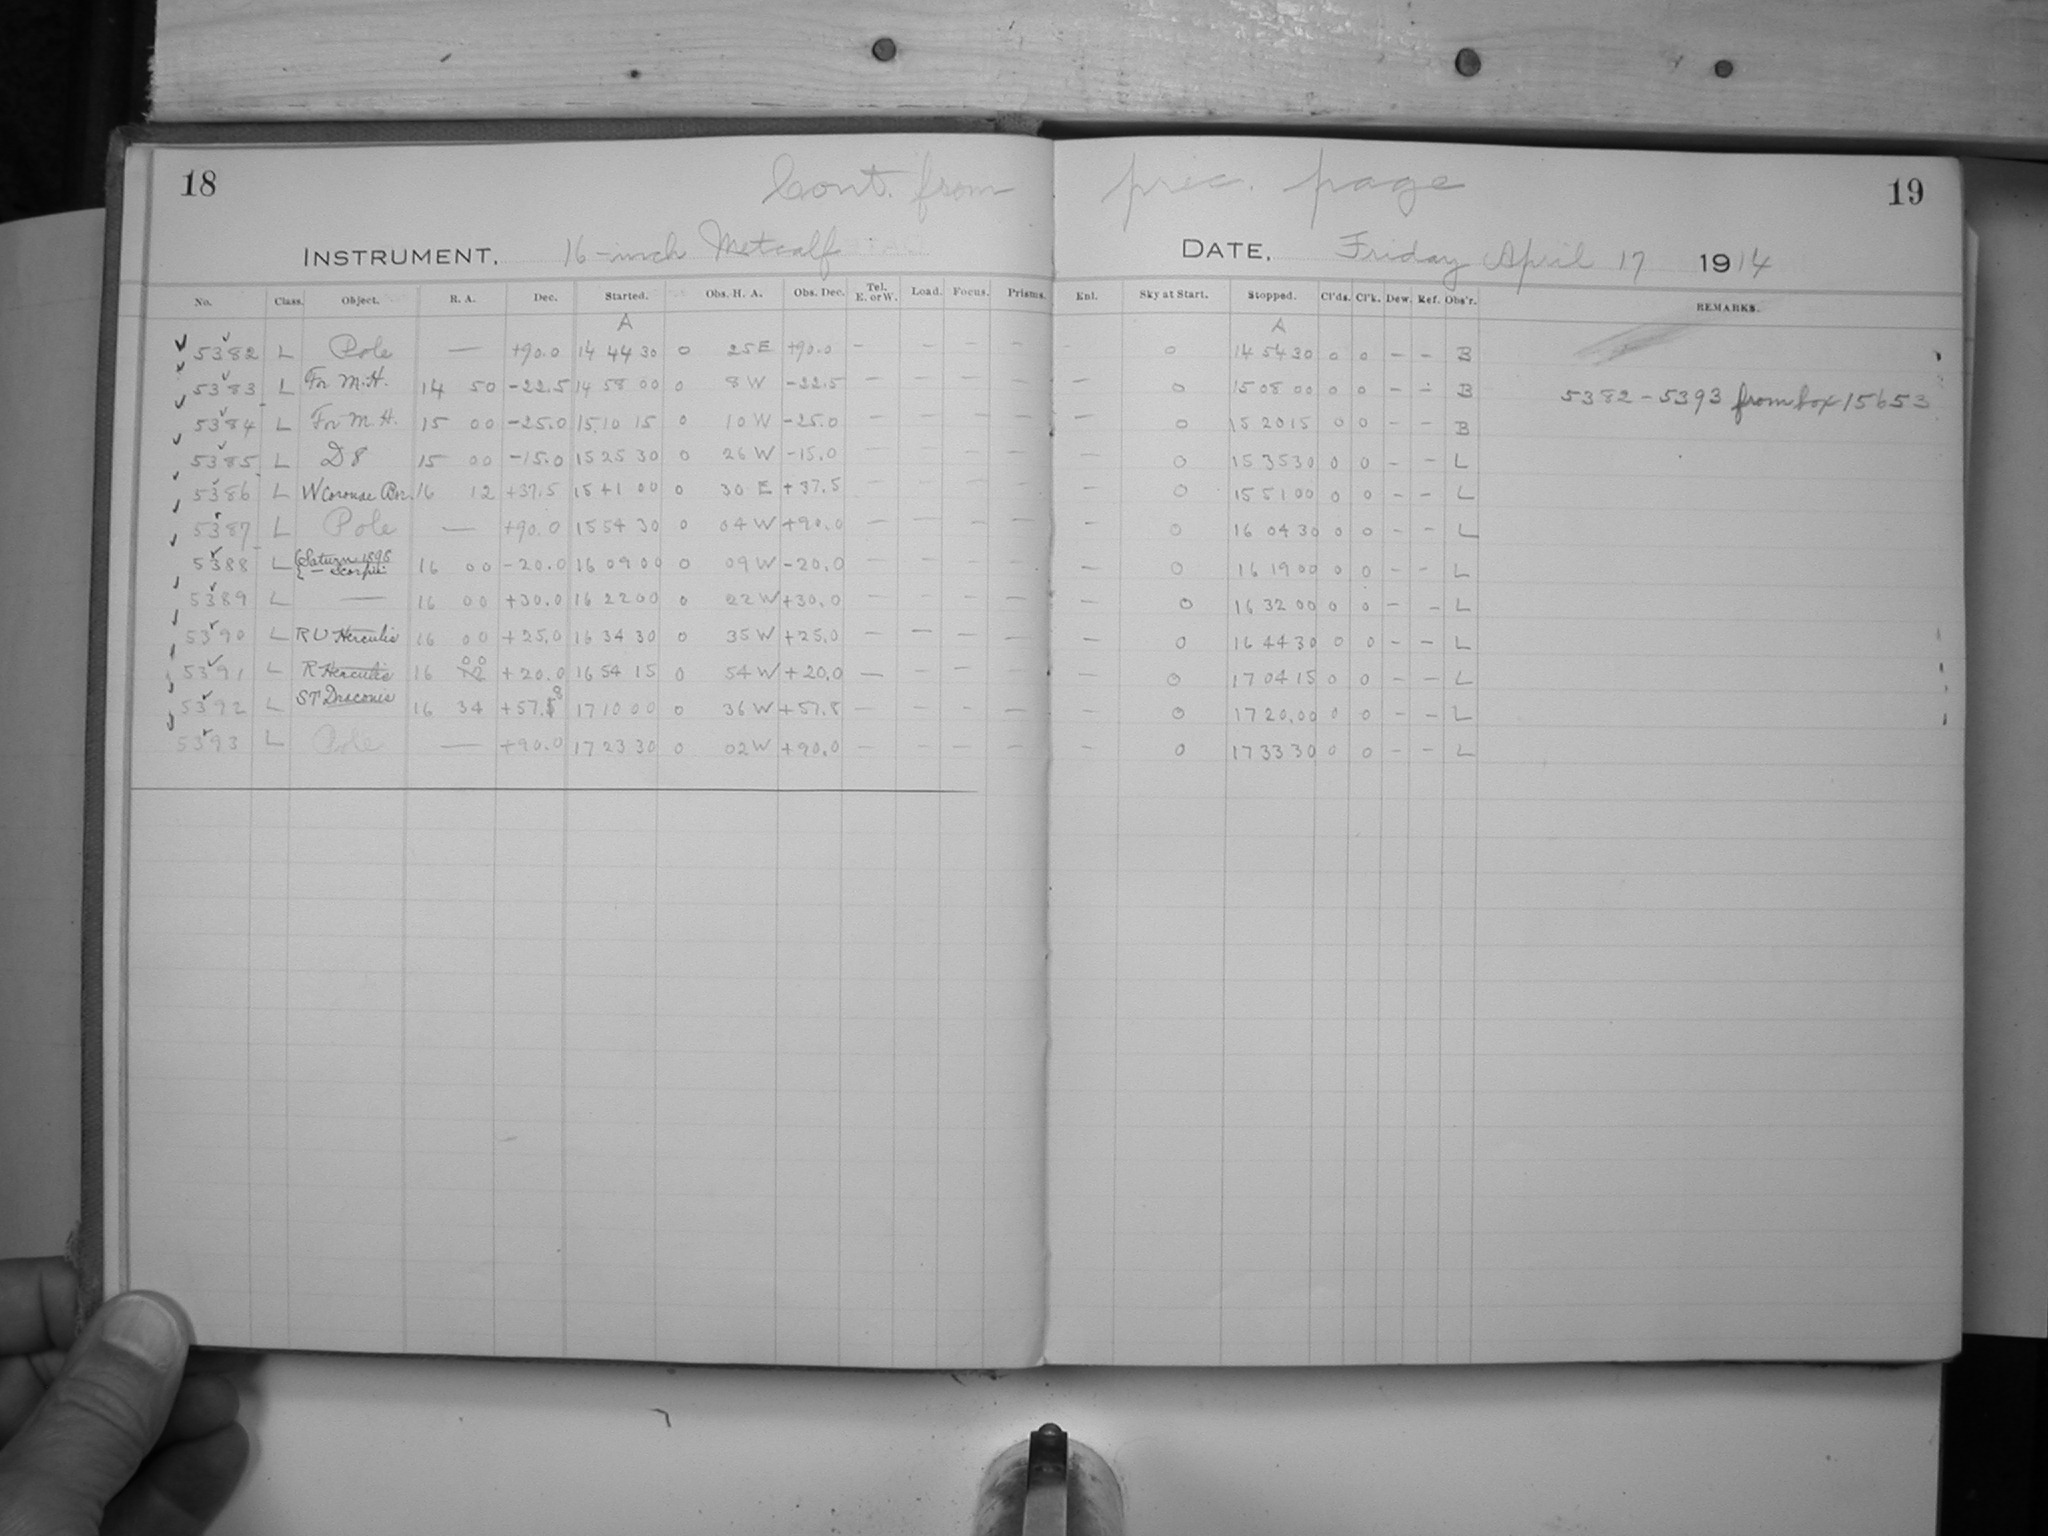 18 Cont. from prec. page 19
INSTRUMENT. 16-inch Metcalf DATE. Friday April 17 1914
No. Class. Object. R. A. Dec. Started. Obs. H. A. Obs. Dec. Tel. E. or W. Load. Focus. Prisms. Enl. Sky at Start. Stopped. Cl'ds. Cl'k. Dew. Ref. Obs'r. REMARKS.
A A
5382 L Pole — +90.0 14 44 30 0 25 E +90.0 — — — — — 0 14 54 30 0 0 — — B
5383 L For M.H. 14 50 -22.5 14 58 00 0 8 W -22.5 — — — — — 0 15 08 00 0 0 — — B 5382 - 5393 from box 15653
5384 L For M.H. 15 00 -25.0 15 10 15 0 10 W -25.0 — — — — — 0 15 20 15 0 0 — — B
5385 L D8 15 00 -15.0 15 25 30 0 26 W -15.0 — — — — — 0 15 35 30 0 0 — — L
5386 L W Coronae Bor. 16 12 +37.5 15 41 00 0 30 E +37.5 — — — — — 0 15 51 00 0 0 — — L
5387 L Pole — +90.0 15 54 30 0 04 W +90.0 — — — — — 0 16 04 30 0 0 — — L
5388 L { Saturn 1898 — Scorpii 16 00 -20.0 16 09 00 0 09 W -20.0 — — — — — 0 16 19 00 0 0 — — L
5389 L — 16 00 +30.0 16 22 00 0 22 W +30.0 — — — — — 0 16 32 00 0 0 — — L
5390 L RU Herculis 16 00 +25.0 16 34 30 0 35 W +25.0 — — — — — 0 16 44 30 0 0 — — L
5391 L R Herculis 16 00 +20.0 16 54 15 0 54 W +20.0 — — — — — 0 17 04 15 0 0 — — L
5392 L ST Draconis 16 34 +57.8 17 10 00 0 36 W +57.8 — — — — — 0 17 20.00 0 0 — — L
5393 L Pole — +90.0 17 23 30 0 02 W +90.0 — — — — — 0 17 33 30 0 0 — — L